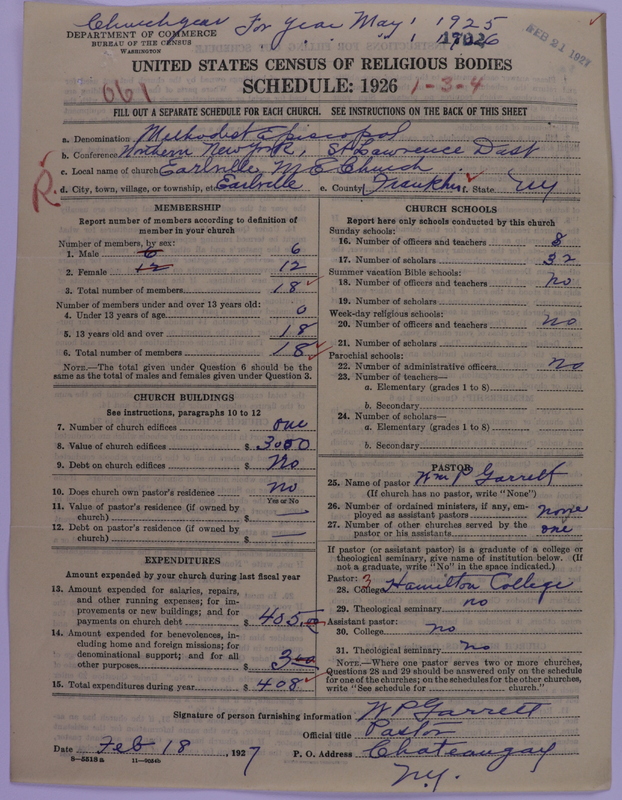 Church year For Year May 1 1925
DEPARTMENT OF COMMERCE
BUREAU OF THE CENSUS
WASHINGTON
FEB 21 1927
UNITED STATES CENSUS OF RELIGIOUS BODIES
SCHEDULE: 1926 1-3-4
061
FILL OUT A SEPARATE SCHEDULE FOR EACH CHURCH. SEE INSTRUCTIONS ON THE BACK OF THIS SHEET
a. Denomination Methodist Episcopal
b. Conference Northern New York, St Lawrence Dist
c. Local name of church Earlville M E Church
R. d. City, town, village, or township, etc Earlville e. County Franklin f. State NY
MEMBERSHIP
Report number of members according to definition of
member in your church
Number of members, by sex:
1. Male 6 6
2. Female 12 12
3. Total number of members 18
Number of members under and over 13 years old:
4. Under 13 years of age 0
5. 13 years old and over 18
6. Total number of members 18
NOTE.—The total given under Question 6 should be the
same as the total of males and females given under Question 3.
CHURCH BUILDINGS
See instructions, paragraphs 10 to 12
7. Number of church edifices one
8. Value of church edifices $ 3000
9. Debt on church edifices $ No
10. Does church own pastor's residence no
Yes or No
11. Value of pastor's residence (if owned by
church) $ —
12. Debt on pastor's residence (if owned by
church) $ —
EXPENDITURES
Amount expended by your church during last fiscal year
13. Amount expended for salaries, repairs,
and other running expenses; for im-
provements or new buildings; and for
payments on church debt $ 405.
14. Amount expended for benevolences, in-
cluding home and foreign missions; for
denominational support; and for all
other purposes $ 3 00
15. Total expenditures during year $ 408
CHURCH SCHOOLS
Report here only schools conducted by this church
Sunday schools:
16. Number of officers and teachers 8
17. Number of scholars 32
Summer vacation Bible schools:
18. Number of officers and teachers no
19. Number of scholars
Week-day religious schools:
20. Number of officers and teachers no
21. Number of scholars
Parochial schools:
22. Number of administrative officers no
23. Number of teachers—
a. Elementary (grades 1 to 8)
b. Secondary
24. Number of scholars—
a. Elementary (grades 1 to 8)
b. Secondary
PASTOR
25. Name of pastor Wm P Garrett
(If church has no pastor, write "None")
26. Number of ordained ministers, if any, em-
ployed as assistant pastors none
27. Number of other churches served by the
pastor or his assistants one
If pastor (or assistant pastor) is a graduate of a college or
theological seminary, give name of institution below. (If
not a graduate, write "No" in the space indicated.)
Pastor: 3
28. College Hamilton College
29. Theological seminary no
Assistant pastor:
30. College no
31. Theological seminary no
NOTE.—Where one pastor serves two or more churches,
Questions 28 and 29 should be answered only on the schedule
for one of the churches; on the schedules for the other churches,
write "See schedule for church."
Signature of person furnishing information W P Garrett
Official title Pastor
Date Feb 18, 1927 P. O. Address Chateaugay
N.Y.
8—5518a 11—9024b